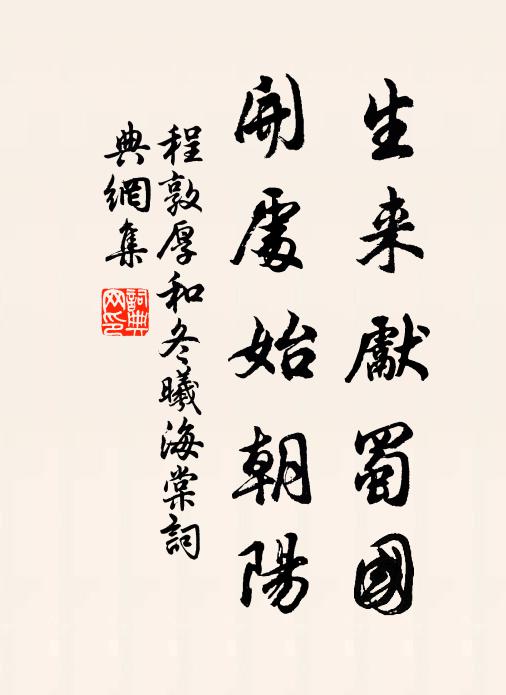 生来獻蜀國
開處始朝陽
程敦厚和冬曦海棠詞
典網集
詞典网印